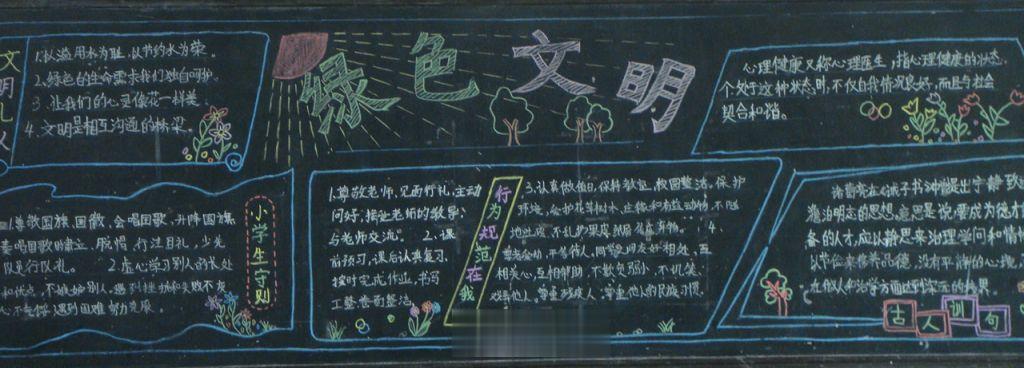 绿色文明
文明礼仪
1.以滥用水为耻,以节约水为荣。
2.绿色的生命需我们独自呵护。
3.让我们的心灵像花一样美
4.文明是相互沟通的桥梁。
心理健康又称心理医生,指心理健康的状态
个处于这种状态时,不仅自我情况良好,而且与社会
契合和谐。
小学生守则
尊敬国旗、国徽,会唱国歌,升降国旗
奏唱国歌时肃立、脱帽、行注目礼,少先
队员行队礼。 2、虚心学习别人的长处
和优点,不嫉妒别人。遇到挫折和失败不灰
心不气馁,遇到困难努力克服。
行为规范在我
1.尊敬老师,见面行礼,主动
问好,接近老师的教导,
与老师交流。 2、课
前预习,课后认真复习,
按时完成作业,书写
工整卷面整洁。
3.认真做值日,保持教室、校园整洁。保护
环境,爱护花草树木、庄稼和有益动物,不随
地吐痰,不乱扔果皮纸屑等废弃物。 4、
平等待人,同学之间友好相处,互
相关心,互相帮助,不欺负弱小,不讥笑、
戏弄他人,尊重残疾人,尊重他人的民族习惯
古人训句
诸葛亮在《诫子书》中提出宁静致
澹泊明志的思想。意思是说,要成为德才
备的人才,应以静思来治理学问和情性
以节俭来修养品德,没有平静的心